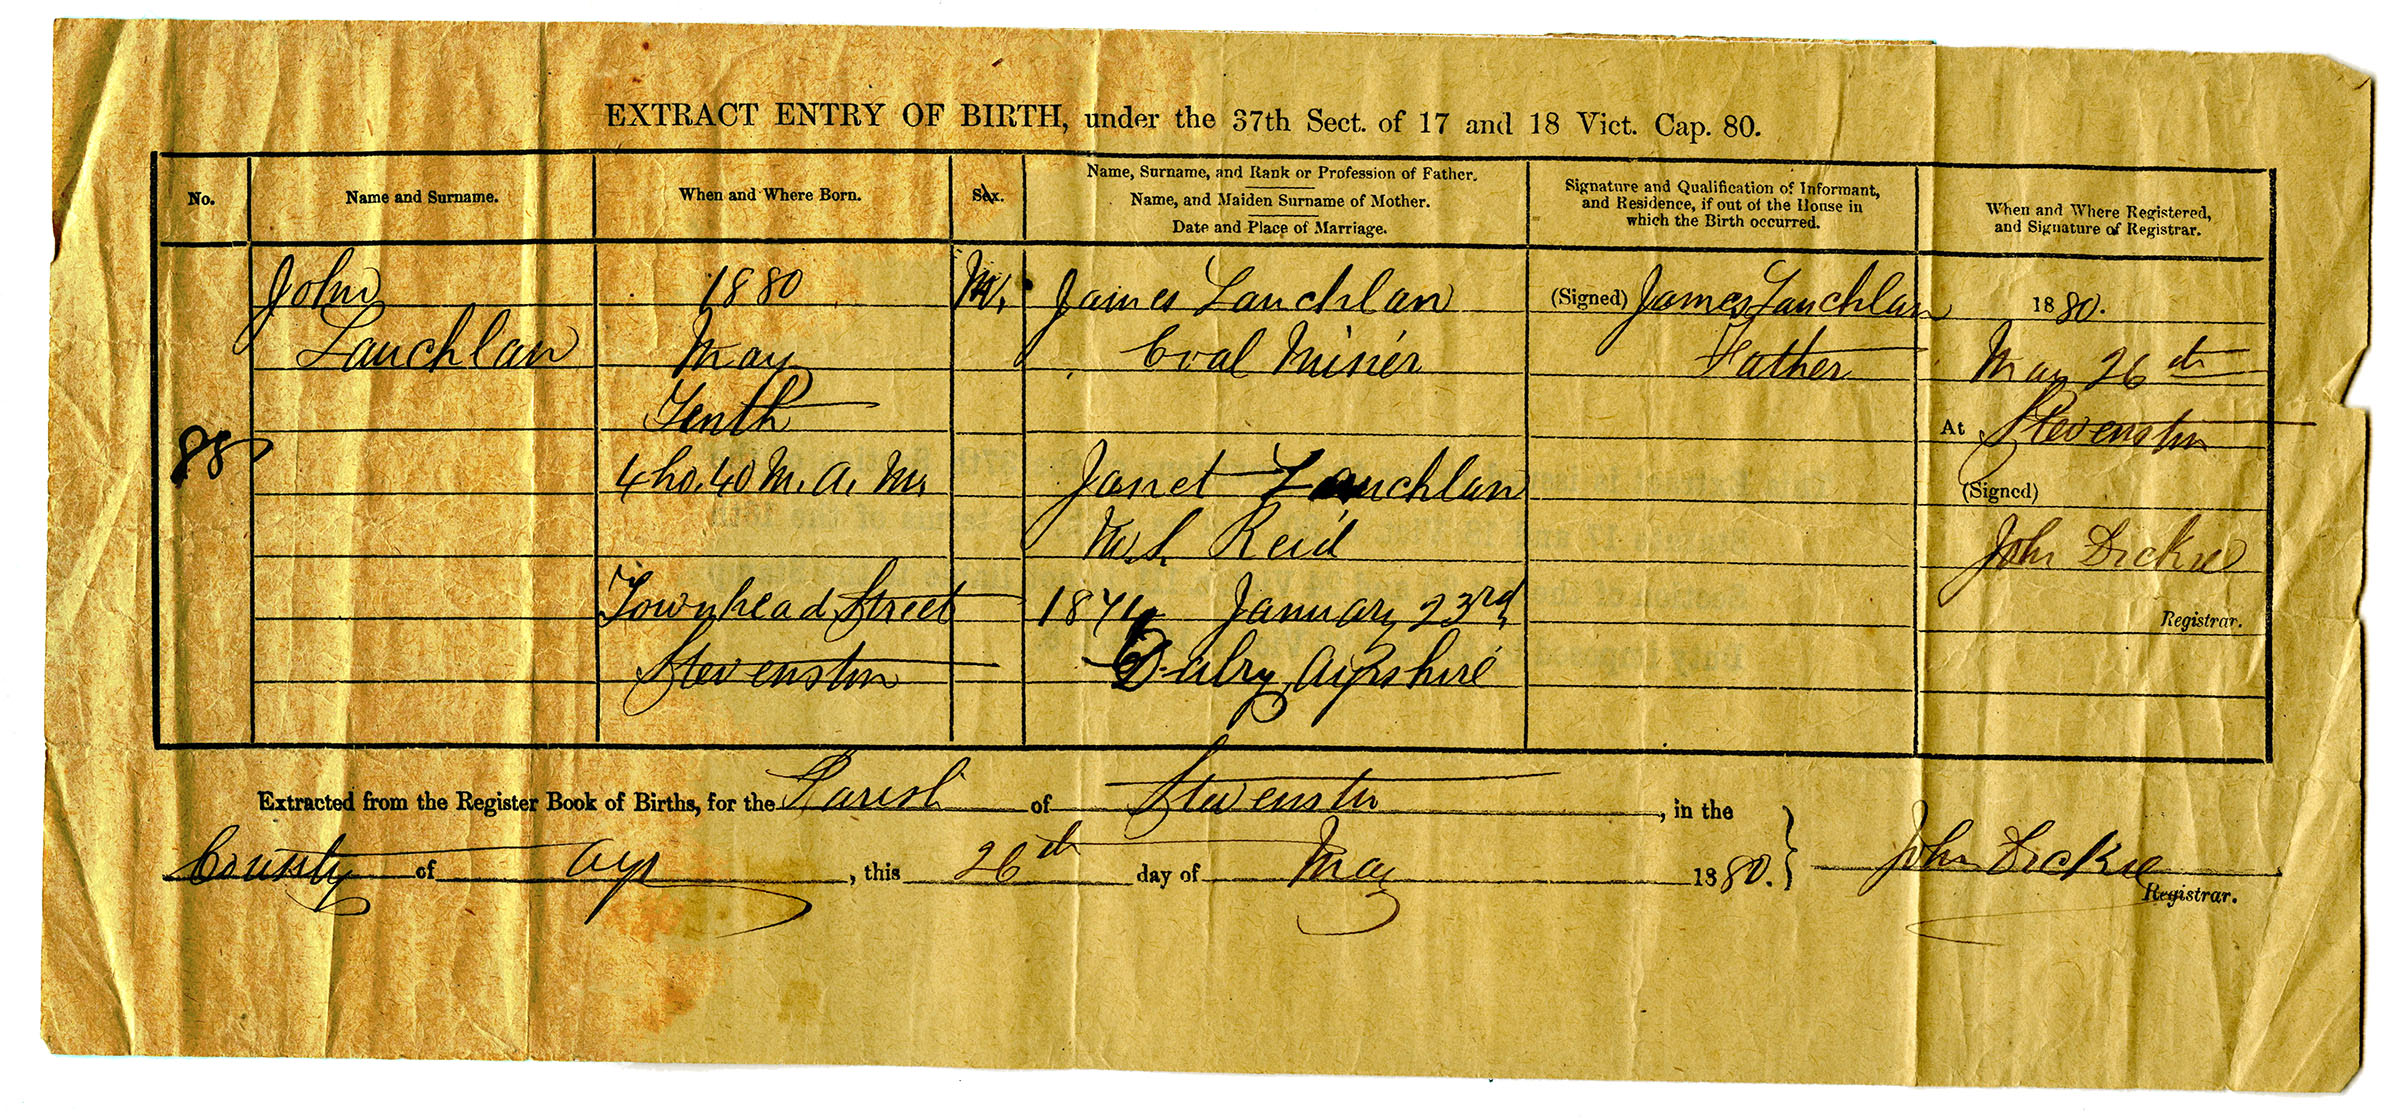 EXTRACT ENTRY OF BIRTH, under the 37th Sect. of 17 and 18 Vict. Cap. 80.
No.
Name and Surname.
When and Where Born.
Sex.
Name, Surname, and Rank or Profession of Father.
Name, and Maiden Surname of Mother.
Date and Place of Marriage.
Signature and Qualification of Informant,
and Residence, if out of the House in
which the Birth occurred.
When and Where Registered,
and Signature of Registrar.
88
John
Lauchlan
1880
May
Tenth
4 ho. 40 M. A. M.
Townhead Street
Stevenston
M.
James Lauchlan
Coal Miner
Janet Lauchlan
M.S. Reid
January 23rd
Dalry Ayrshire
(Signed) James Lauchlan
Father
1880.
May 26th
At Stevenston
(Signed)
John Dickie
Registrar.
Extracted from the Register Book of Births, for the Parish of Stevenston, in the
County of Ayr, this 26th day of May 1880. } John Dickie
Registrar.